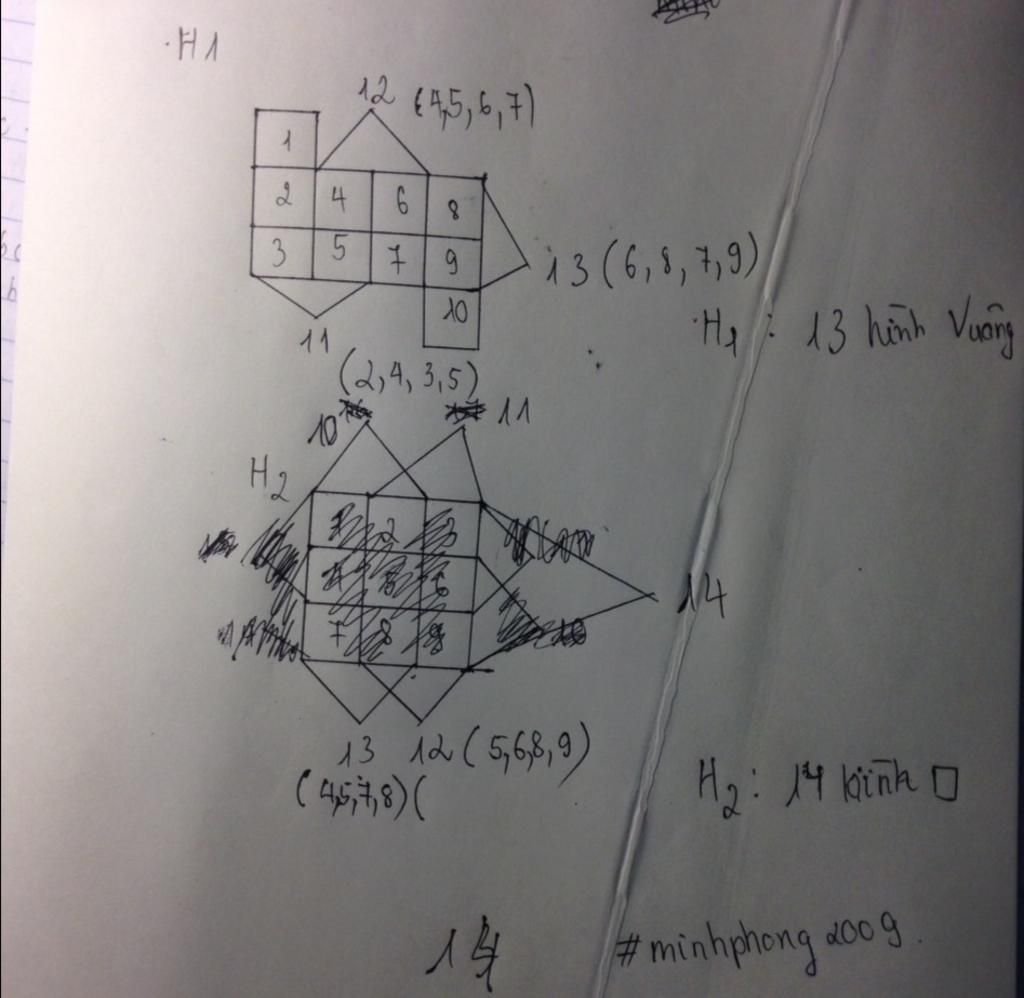 H1
12 (4,5, 6, 7)
1
2 4 6 8
3 5 7 9
13 (6, 8, 7, 9)
10
11
(2, 4, 3, 5)
H1 : 13 hình Vuông
10 11
H2
1 2 3
4 5 6
7 8 9
14
13 12 (5,6,8,9)
(4,5,7,8) (
H2 : 14 hình □
14
#minhphong2009.